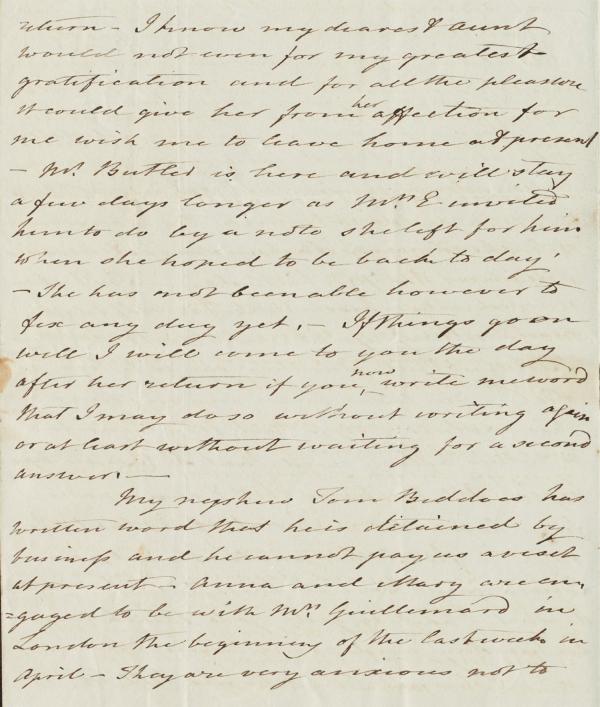 return – I know my dearest aunt
would not even for my greatest
gratification and for all the pleasure
it could give her from her affection for
me wish me to leave home at present
– Mr. Butler is here and will stay
a few days longer as Mrs E invited
him to do by a note she left for him
when she hoped to be back to day.
– She has not been able however to
fix any day yet. – If things go on
well I will come to you the day
after her return if you now write me word
that I may do so without writing again
or at least without waiting for a second
answer. –
My nephew Tom Beddoes has
written word that he is detained by
business and he cannot pay us a visit
at present – Anna and Mary are en-
=gaged to be with Mrs. Guillemard in
London the beginning of the last week in
April – They are very anxious not to